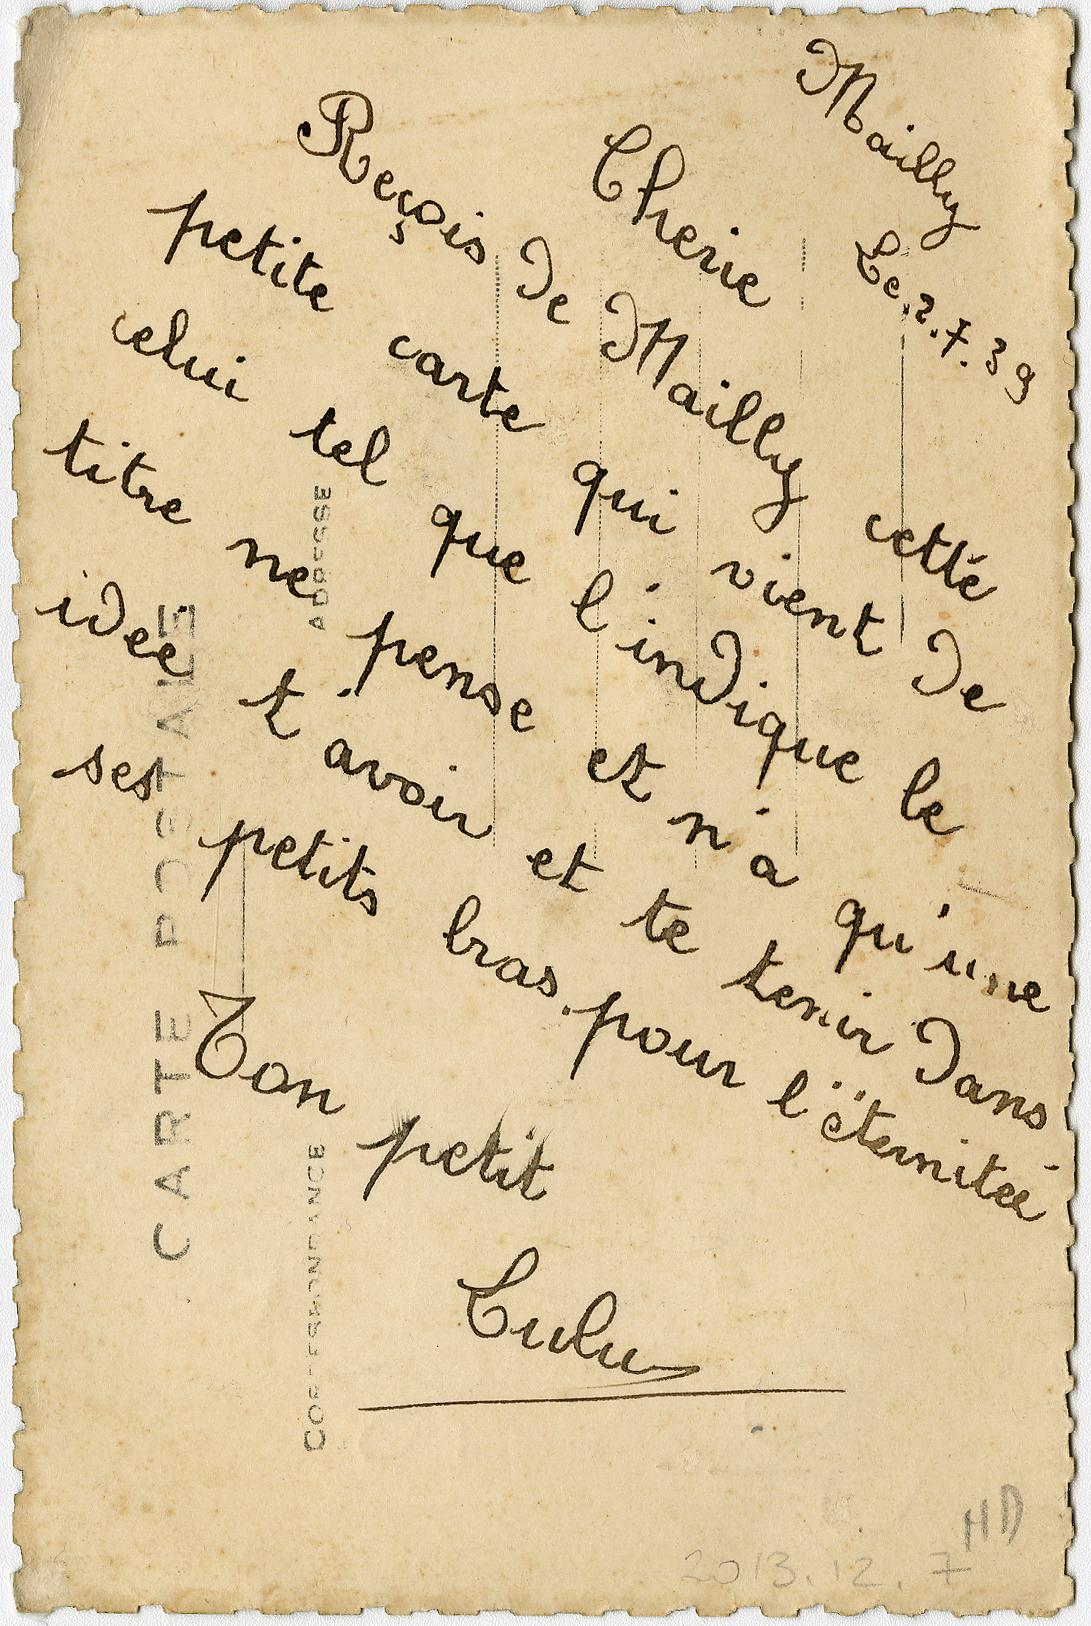 Mailly
Le.2.7.39
Cherie
Reçois de Mailly cette
petite carte qui vient de
celui tel que l'indique le
titre ne pense et n'a qu'une
idee t'avoir et te tenir dans
ses petits bras pour l'éternitee
Ton petit
Lulu
CARTE POSTALE
ADRESSE
CORRESPONDANCE
HD
2013.12.7